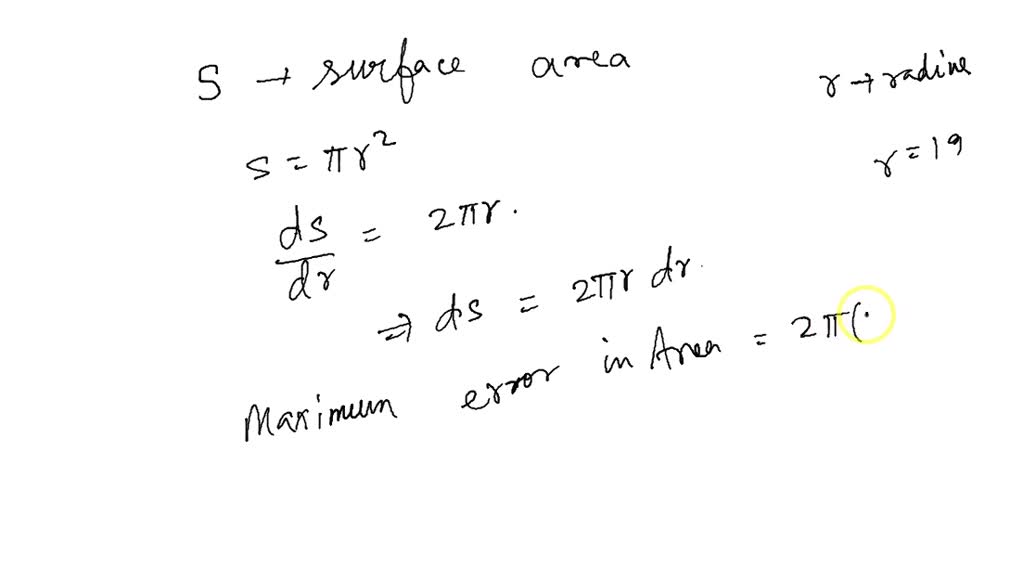 S → surface area
r → radius
s = πr²
r = 19
ds/dr = 2πr.
⇒ ds = 2πr dr.
Maximum error in Area = 2π(.